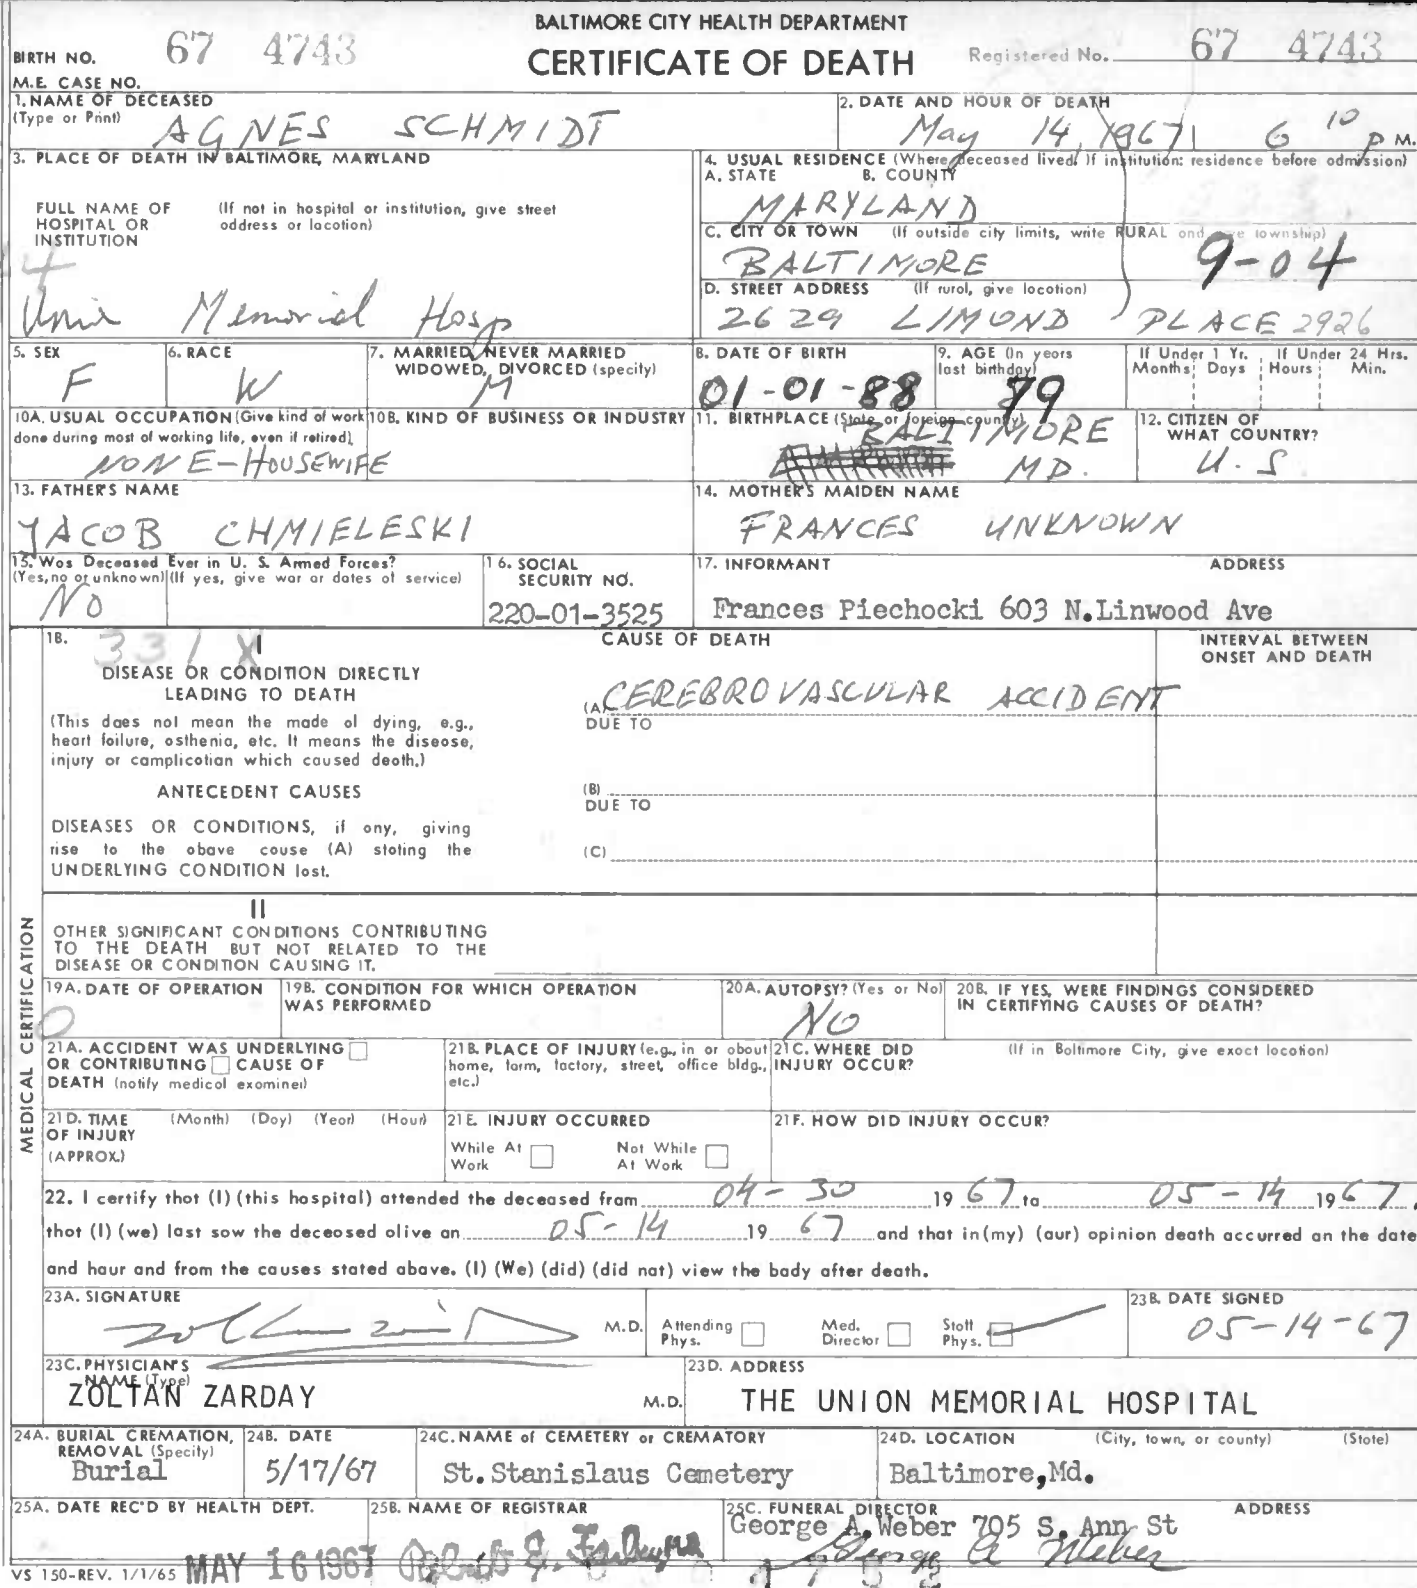 BALTIMORE CITY HEALTH DEPARTMENT
CERTIFICATE OF DEATH
BIRTH NO. 67 4743
Registered No. 67 4743
M.E. CASE NO.
1. NAME OF DECEASED
(Type or Print) AGNES SCHMIDT
2. DATE AND HOUR OF DEATH
May 14, 1967 6 10 P M.
3. PLACE OF DEATH IN BALTIMORE, MARYLAND
FULL NAME OF HOSPITAL OR INSTITUTION
(If not in hospital or institution, give street address or location)
4
Memorial Hosp
4. USUAL RESIDENCE (Where deceased lived. If institution: residence before admission)
A. STATE B. COUNTY
MARYLAND
C. CITY OR TOWN (If outside city limits, write RURAL and township)
BALTIMORE 9-04
D. STREET ADDRESS (If rural, give location)
2629 LIMOND PLACE 2926
5. SEX
F
6. RACE
W
7. MARRIED, NEVER MARRIED
WIDOWED, DIVORCED (specify)
M
8. DATE OF BIRTH
01-01-88
9. AGE (In years
last birthday)
79
If Under 1 Yr. If Under 24 Hrs.
Months Days Hours Min.
10A. USUAL OCCUPATION (Give kind of work
done during most of working life, even if retired)
NONE-HOUSEWIFE
10B. KIND OF BUSINESS OR INDUSTRY
11. BIRTHPLACE (State or foreign country)
BALTIMORE
MD.
12. CITIZEN OF
WHAT COUNTRY?
U.S
13. FATHER'S NAME
JACOB CHMIELESKI
14. MOTHER'S MAIDEN NAME
FRANCES UNKNOWN
15. Was Deceased Ever in U. S. Armed Forces?
(Yes, no or unknown) (If yes, give war or dates of service)
NO
16. SOCIAL
SECURITY NO.
220-01-3525
17. INFORMANT ADDRESS
Frances Piechocki 603 N.Linwood Ave
MEDICAL CERTIFICATION
18. 331 X
I
DISEASE OR CONDITION DIRECTLY
LEADING TO DEATH
(This does not mean the mode of dying, e.g.,
heart failure, asthenia, etc. It means the disease,
injury or complication which caused death.)
ANTECEDENT CAUSES
DISEASES OR CONDITIONS, if any, giving
rise to the above cause (A) stating the
UNDERLYING CONDITION last.
CAUSE OF DEATH
(A) CEREBROVASCULAR ACCIDENT
DUE TO
(B)
DUE TO
(C)
INTERVAL BETWEEN
ONSET AND DEATH
II
OTHER SIGNIFICANT CONDITIONS CONTRIBUTING
TO THE DEATH BUT NOT RELATED TO THE
DISEASE OR CONDITION CAUSING IT.
19A. DATE OF OPERATION
0
19B. CONDITION FOR WHICH OPERATION
WAS PERFORMED
20A. AUTOPSY? (Yes or No)
NO
20B. IF YES, WERE FINDINGS CONSIDERED
IN CERTIFYING CAUSES OF DEATH?
21A. ACCIDENT WAS UNDERLYING
OR CONTRIBUTING CAUSE OF
DEATH (notify medical examiner)
21B. PLACE OF INJURY (e.g., in or about
home, farm, factory, street, office bldg.,
etc.)
21C. WHERE DID (If in Baltimore City, give exact location)
INJURY OCCUR?
21D. TIME (Month) (Day) (Year) (Hour)
OF INJURY
(APPROX.)
21E. INJURY OCCURRED
While At Work
Not While At Work
21F. HOW DID INJURY OCCUR?
22. I certify that (I) (this hospital) attended the deceased from 04-30 1967 to 05-14 1967,
that (I) (we) last saw the deceased alive on 05-14 19 67 and that in (my) (our) opinion death occurred on the date
and hour and from the causes stated above. (I) (We) (did) (did not) view the body after death.
23A. SIGNATURE
M.D. Attending Phys. Med. Director Staff Phys.
23B. DATE SIGNED
05-14-67
23C. PHYSICIAN'S
NAME (Type)
ZOLTAN ZARDAY M.D.
23D. ADDRESS
THE UNION MEMORIAL HOSPITAL
24A. BURIAL CREMATION,
REMOVAL (Specify)
Burial
24B. DATE
5/17/67
24C. NAME of CEMETERY or CREMATORY
St.Stanislaus Cemetery
24D. LOCATION (City, town, or county) (State)
Baltimore,Md.
25A. DATE REC'D BY HEALTH DEPT.
MAY 16 1967
25B. NAME OF REGISTRAR
25C. FUNERAL DIRECTOR ADDRESS
George A.Weber 705 S. Ann St
George A Weber
VS 150-REV. 1/1/65